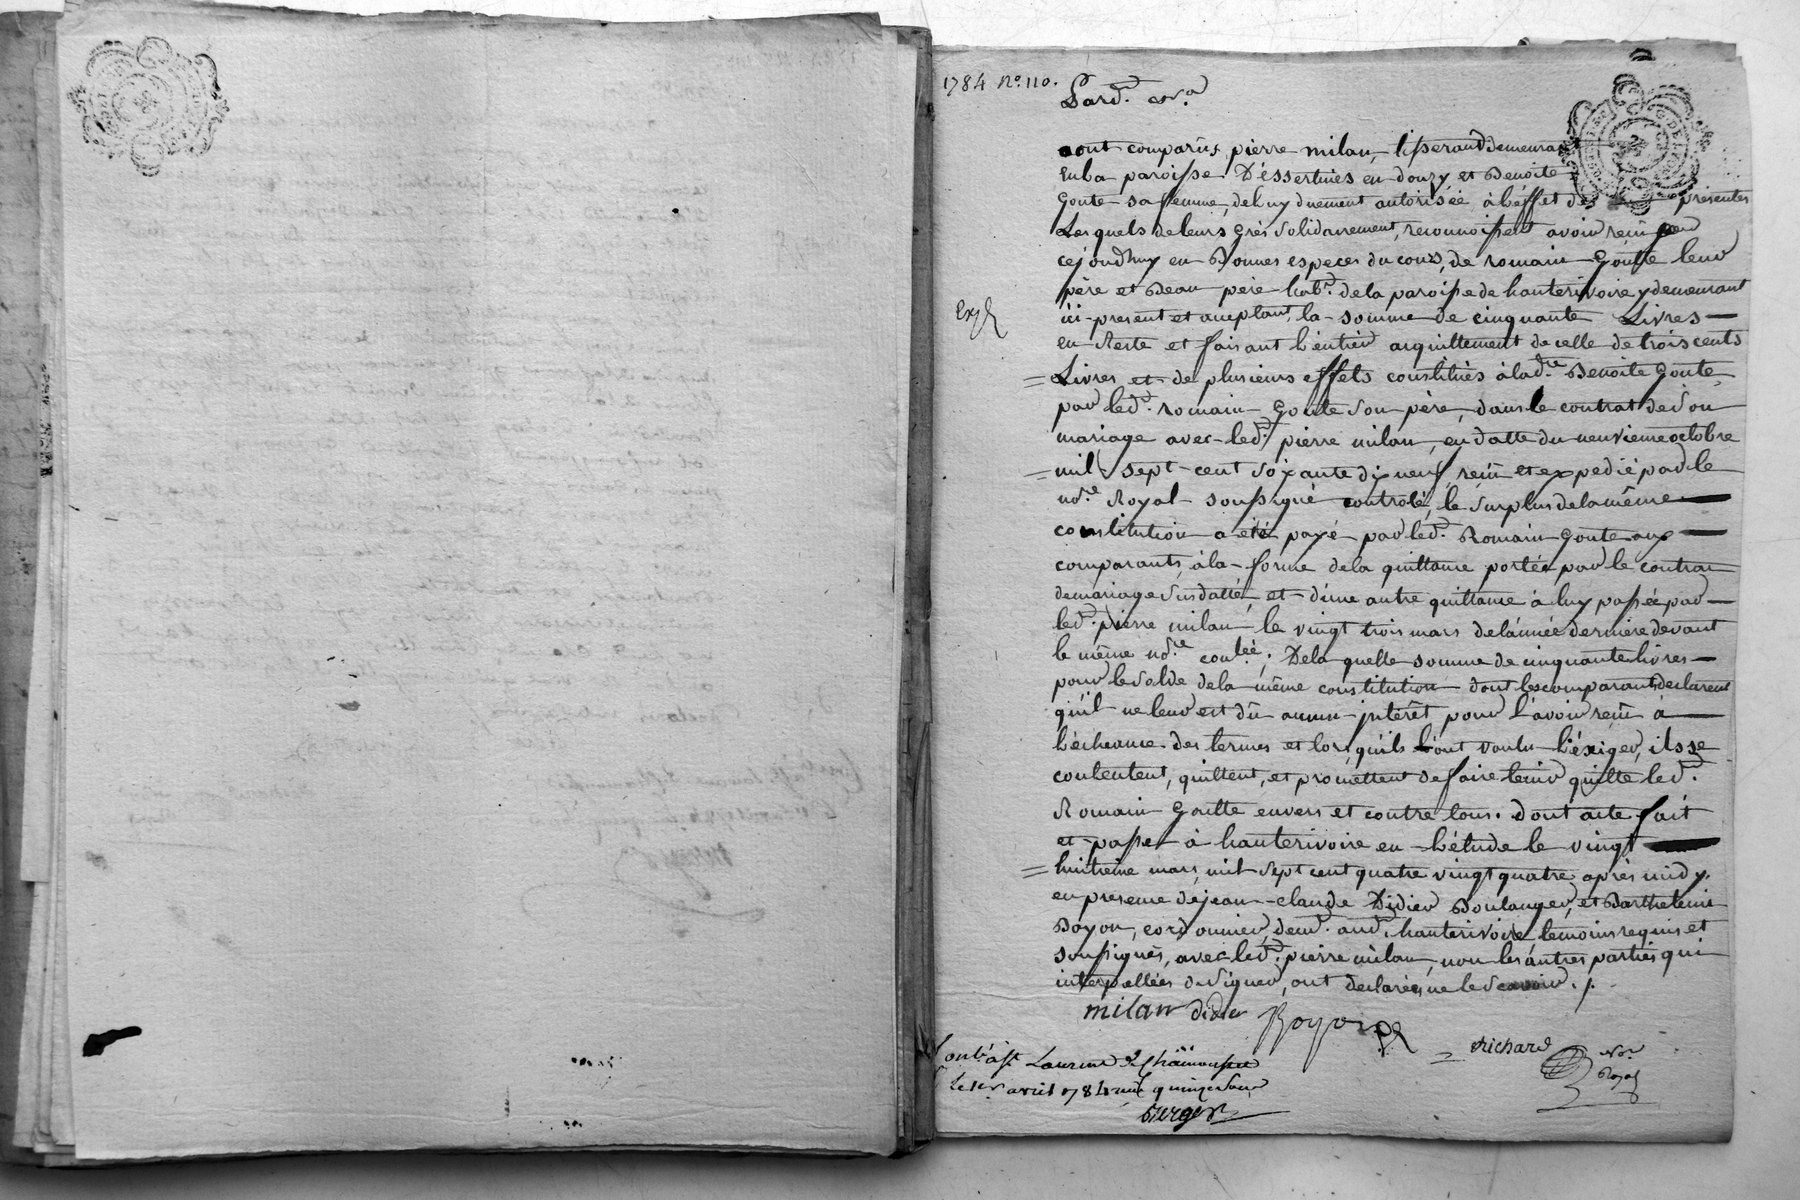 1784 No. 110.
Pard.t no.re
sont comparus pierre milan, tisserand demeurant
en la paroisse D'éssertines en donzy et Benoite
Goute sa femme, de luy duement autorisée à l'éffet des présentes
Lesquels de leurs grés solidairement, reconnoissent avoir reçu
cejourdhuy en Bonnes especes du cours, de romain Goutte leur
père et Beau père hab.t de la paroisse de hauterivoire y demeurant
ici present et acceptant, la somme de cinquante Livres
en Reste et faisant l'entier acquittement de celle de trois cents
Livres et de plusieurs effets constitués à lad.te Benoite Goute
par led.t romain Goute son père, dans le contrat de son
mariage avec led.t pierre milan, en datte du neuvieme octobre
mil sept cent soixante dix neuf, reçu et expedié par le
no.re Royal soussigné controlé, le surplus de la même
constitution a été payé par led.t Romain Goute aux
comparants à la forme de la quittance portée par le contrat
de mariage susdatté, et d'une autre quittance à luy passée par
led.t pierre milan le vingt trois mars de l'année derniere devant
le même no.re con.lée; De la quelle somme de cinquante livres
pour le solde de la même constitution dont les comparants declarent
qu'il ne leur est dû aucun interêt pour l'avoir reçu a
l'écheance des termes et lors qu'ils l'ont voulu l'éxiger, ils se
contentent, quittent, et promettent de faire tenir quitte led.t
Romain Goutte envers et contre tous. Dont acte fait
et passé à hauterivoire en l'étude le vingt
huitième mars mil sept cent quatre vingt quatre après midy
en presence de jean claude Didier Boulanger, et Barthelemi
Boyon, cordonnier, dem.t aud.t hauterivoire temoins requis et
soussignés, avec led.t pierre milan, non les autres parties qui
interpellées de signer, ont declarées ne le scavoir ./.
Exp
milan didier Boyon
Richard no.re Royal
Cont. à St Laurent de Chamousset
Le 1er avril 1784 reçu quinze sous